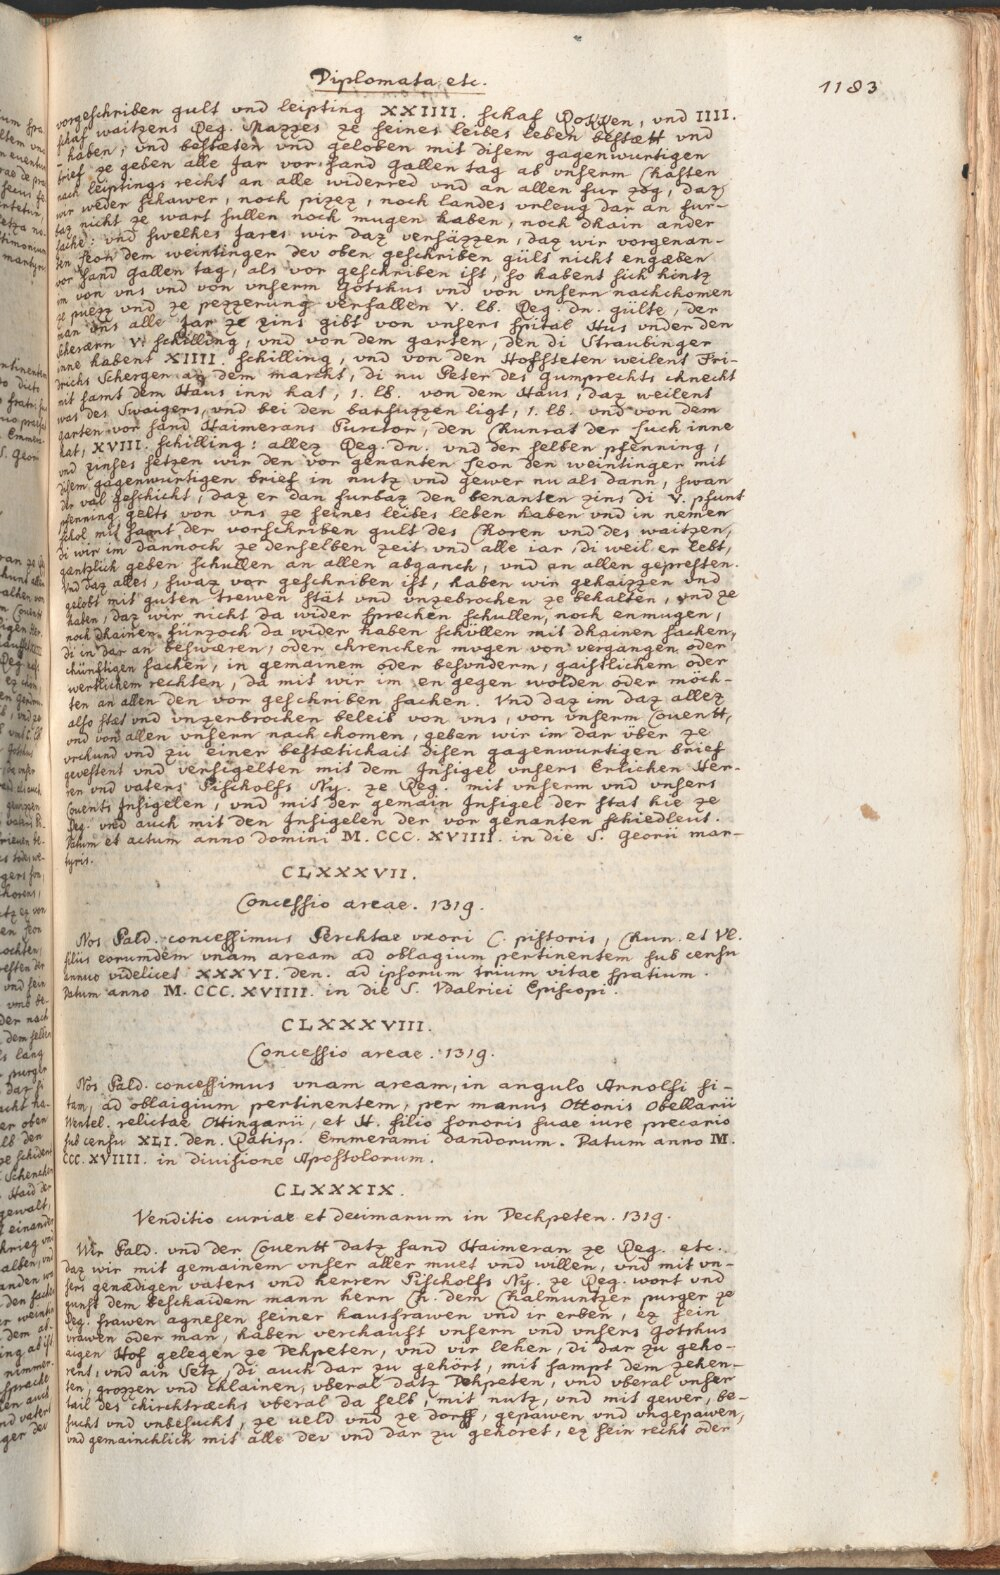 Diplomata etc.
1183
vorgeschriben gult vnd leipting XXIIII. schaf Rokken, vnd IIII.
schaf waitzens Reg. Mazzes ze seines leibes leben bestætt vnd
haben, vnd bestæten vnd geloben mit disem gagenwurtigen
brief ze geben alle Jar vor sand Gallen tag ab vnserm Chasten
nach leiptings recht an alle widerred vnd an allen fur zog, daz
wir weder schawer, noch pizez, noch landes vrleug dar an fur-
baz nicht ze wart sullen noch mugen haben, noch dhain ander
sache: vnd swelhes Jares wir daz versäzzen, daz wir vorgenan-
ten seon dem weintinger der oben geschriben gült nicht engæben
vor sand Gallen tag, als vor geschriben ist, so habent sich hintz
im von vns vnd von vnserm Gotshus vnd von vnsern nachchomen
ze puezz vnd ze pezzerung verfallen V. lb. Reg. dn. gülte, der
man vns alle Jar ze zins gibt von vnsers spital Hus vnder den
scherærn V. schilling, vnd von dem garten, den di Straubinger
inne habent XIIII. schilling, vnd von den Hofsteten weilent Fri-
drichs Schergen an dem marcht, di nu Peter des Gumprechts chnecht
mit samt dem Haus inn hat, 1. lb. von dem Haus, daz weilent
was des Swaigers, vnd bei den barfuzzen ligt, 1. lb. vnd von dem
garten vor sand Haimerans Purctor, den Chunrat der such inne
hat, XVIII. schilling: allez Reg. dn. vnd der selben pfenning,
vnd zinses setzen wir den vor genanten seon den weintinger mit
disem gagenwurtigen brief in nutz vnd gewer nu als dann, swan
der val geschicht, daz er dan furbaz den benanten zins di V. phunt
pfenning gelts von vns ze seines leibes leben haben vnd in nemen
schol mit samt der vorschriben gult des Choren vnd des waitzen,
di wir im dannoch ze derselben zeit vnd alle iar, di weil er lebt,
gæntzlich geben schullen an allen abganch, vnd an allen gepresten.
Vnd daz alles, swaz vor geschriben ist, haben wir gehaizzen vnd
gelobt mit guten trewen stät vnd vnzebrochen ze behalten, vnd ze
haben, daz wir nicht da wider sprechen schullen, noch enmugen,
noch dhainen fürzoch da wider haben schullen mit dhainen sachen,
di in dar an beswæren, oder chrencken mugen von vergangen oder
chünftigen sachen, in gemainem oder besunderm, gaistlichem oder
wertlichem rechten, da mit wir im en gegen wolden oder möch-
ten an allen den vor geschriben sachen. Vnd daz im daz allez
also stæt vnd vnzerbrochen beleib von vns, von vnserm Couentt,
vnd von allen vnsern nach chomen, geben wir im dar vber ze
vrchund vnd zu einer bestætichait disen gagenwurtigen brief
gevestent vnd versigelten mit dem Insigel vnsers Erlichen Her-
ren vnd vaters Pischolfs Ny. ze Reg. mit vnserm vnd vnsers
Couents Insigellen, vnd mit der gemain Insigel der stat hie ze
Reg. vnd auch mit den Insigelen der vor genanten schiedleut.
Datum et actum anno domini M. CCC. XVIIII. in die S. Georii mar-
tyris.
CLXXXVII.
Concessio areae. 1319.
Nos Pald. concessimus Perchtae vxori C. pistoris, Chun. et Vl.
filiis eorumdem vnam aream ad oblagium pertinentem sub censu
annuo videlicet XXXVI. den. ad ipsorum trium vitae spatium.
Datum anno M. CCC. XVIIII. in die S. Vdalrici Episcopi.
CLXXXVIII.
Concessio areae. 1319.
Nos Pald. concessimus vnam aream, in angulo Arnolfi si-
tam, ad oblaigium pertinentem, per manus Ottonis Obellarii
Wentel. relictae Ottingarii, et H. filio sororis suae iure precario
sub censu XLI. den. Ratisp. Emmerami dandorum. Datum anno M.
CCC. XVIIII. in divisione Apostolorum.
CLXXXIX.
Venditio curiae et decimarum in Pechpeten. 1319.
Wir Pald. vnd der Couentt datz sand Haimeran ze Reg. etc.
daz wir mit gemainem vnser aller muet vnd willen, vnd mit vn-
sers genædigen vaters vnd herren Pischolfs Ny. ze Reg. wort vnd
gunst dem beschaidem mann hern Ch. dem Chalmuntzer purger ze
Reg. frawen agnesen seiner hausfrawen vnd ir erben, ez sein
vrawen oder man, haben verchauft vnsern vnd vnsers Gotshus
aigen Hof gelegen ze Pehpeten, vnd vir lehen, di dar zu geho-
rent, vnd ain Setz, di auch dar zu gehört, mit sampt dem zehen-
ten, grozzen vnd chlainen, vberal datz Pehpeten, vnd vberal vnser
tail des chirchtræchs vberal da selb, mit nutz, vnd mit gewer, be-
sucht vnd vnbesucht, ze veld vnd ze dorff, gepawen vnd vngepawen,
vnd gemainchlich mit alle dev vnd dar zu gehöret, ez sein recht oder